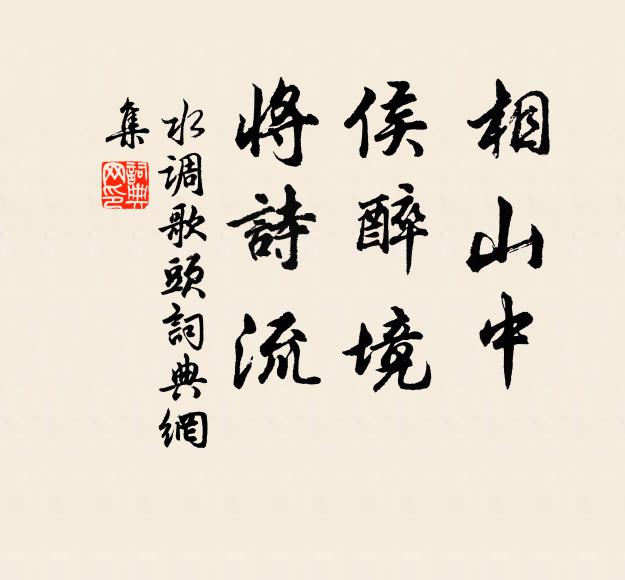 相山中
侯醉境
將詩流
水调歌頭詞典網
集
詞典
网印